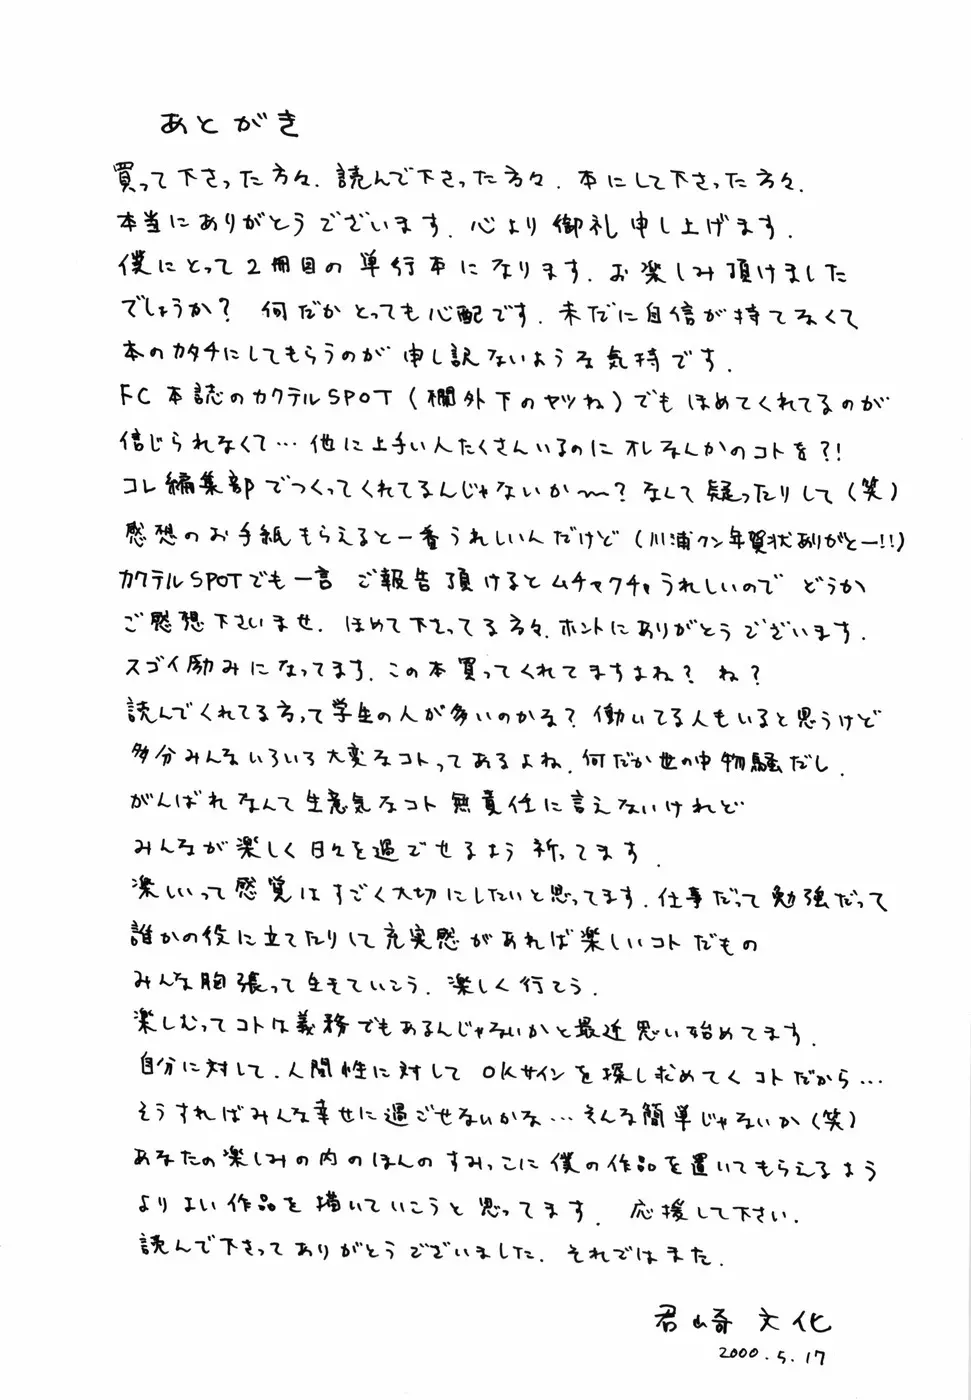 あとがき
買って下さった方々、読んで下さった方々、本にして下さった方々、
本当にありがとうございます。心より御礼申し上げます。
僕にとって2冊目の単行本になります。お楽しみ頂けました
でしょうか？ 何だかとっても心配です。未だに自信が持てなくて
本のカタチにしてもらうのが申し訳ないような気持です。
FC本誌のカクテルSPOT（欄外下のヤツね）でもほめてくれてるのが
信じられなくて…他に上手い人たくさんいるのにオレなんかのコトを?!
コレ編集部でつくってくれてるんじゃないか〜？なんて疑ったりして（笑）
感想のお手紙もらえると一番うれしいんだけど（川浦クン年賀状ありがとー!!）
カクテルSPOTでも一言ご報告頂けるとムチャクチャうれしいので どうか
ご感想下さいませ。ほめて下さってる方々、ホントにありがとうございます。
スゴイ励みになってます。この本買ってくれてますよね？ ね？
読んでくれてる方って学生の人が多いのかな？働いてる人もいると思うけど
多分みんないろいろ大変なコトってあるよね。何だか世の中物騒だし。
がんばれなんて生意気なコト無責任に言えないけれど
みんなが楽しく日々を過ごせるよう祈ってます。
楽しいって感覚はすごく大切にしたいと思ってます。仕事だって勉強だって
誰かの役に立てたりして充実感があれば楽しいコトだもの
みんな胸張って生きていこう。楽しく行こう。
楽しむってコトは義務でもあるんじゃないかと最近思い始めてます。
自分に対して、人間性に対してOKサインを探し求めてくコトだから…
そうすればみんな幸せに過ごせないかな…そんな簡単じゃないか（笑）
あなたの楽しみの内のほんのすみっこに僕の作品を置いてもらえるよう
よりよい作品を描いていこうと思ってます。 応援して下さい。
読んで下さってありがとうございました。それではまた。
君崎 文化
2000.5.17